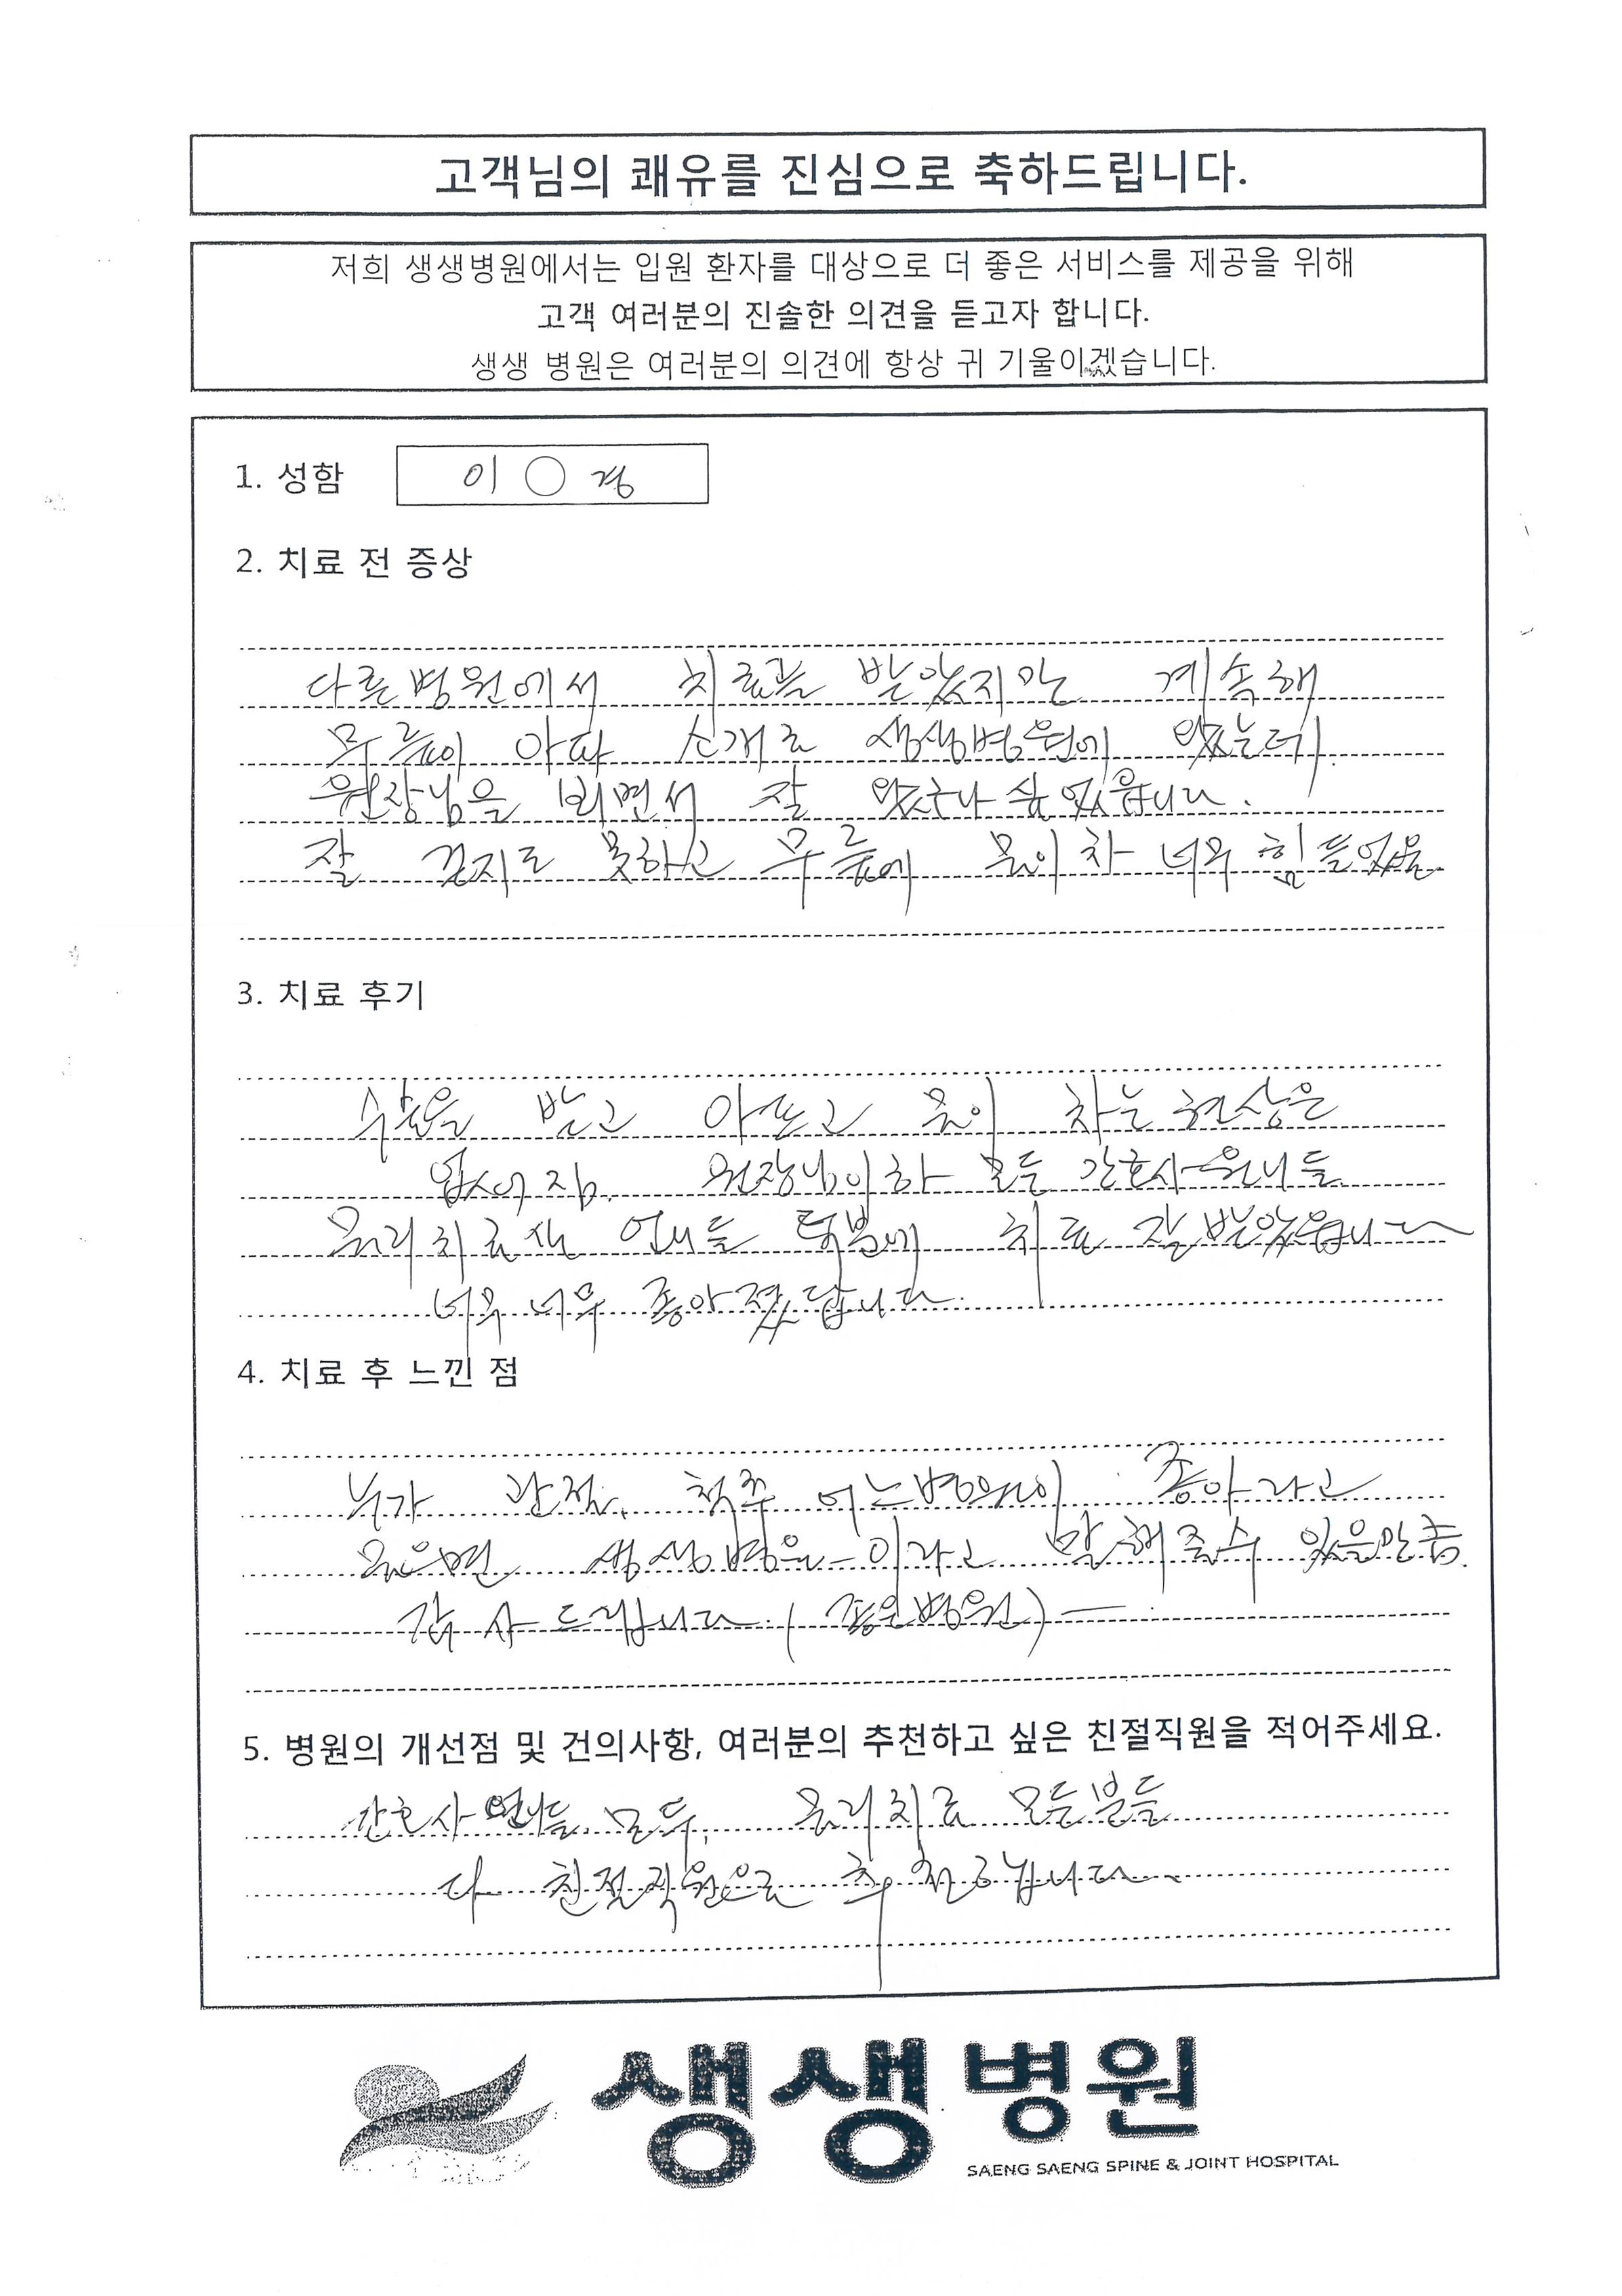 고객님의 쾌유를 진심으로 축하드립니다.
저희 생생병원에서는 입원 환자를 대상으로 더 좋은 서비스를 제공을 위해
고객 여러분의 진솔한 의견을 듣고자 합니다.
생생 병원은 여러분의 의견에 항상 귀 기울이겠습니다.
1. 성함 이 ○ 경
2. 치료 전 증상
다른병원에서 치료를 받았지만 계속해
무릎이 아파 소개로 생생병원에 왔는데
원장님을 뵈면서 잘 왔구나 싶었읍니다.
잘 걷지도 못하고 무릎에 물이차 너무 힘들었음
3. 치료 후기
수술을 받고 아프고 물이 차는 현상은
없어짐. 원장님이하 모든 간호사
물리치료사 언니들 덕분에 치료 잘 받았읍니다
너무 너무 좋아졌답니다.
4. 치료 후 느낀 점
누가 관절, 척추 어느병원이 좋아라고
물으면 생생병원 이라고 말해줄수 있을만큼.
감사드립니다. (좋은병원)
5. 병원의 개선점 및 건의사항, 여러분의 추천하고 싶은 친절직원을 적어주세요.
간호사 언니들 모두, 물리치료 모든분들
다 친절직원으로 추천합니다
생생병원
SAENG SAENG SPINE & JOINT HOSPITAL